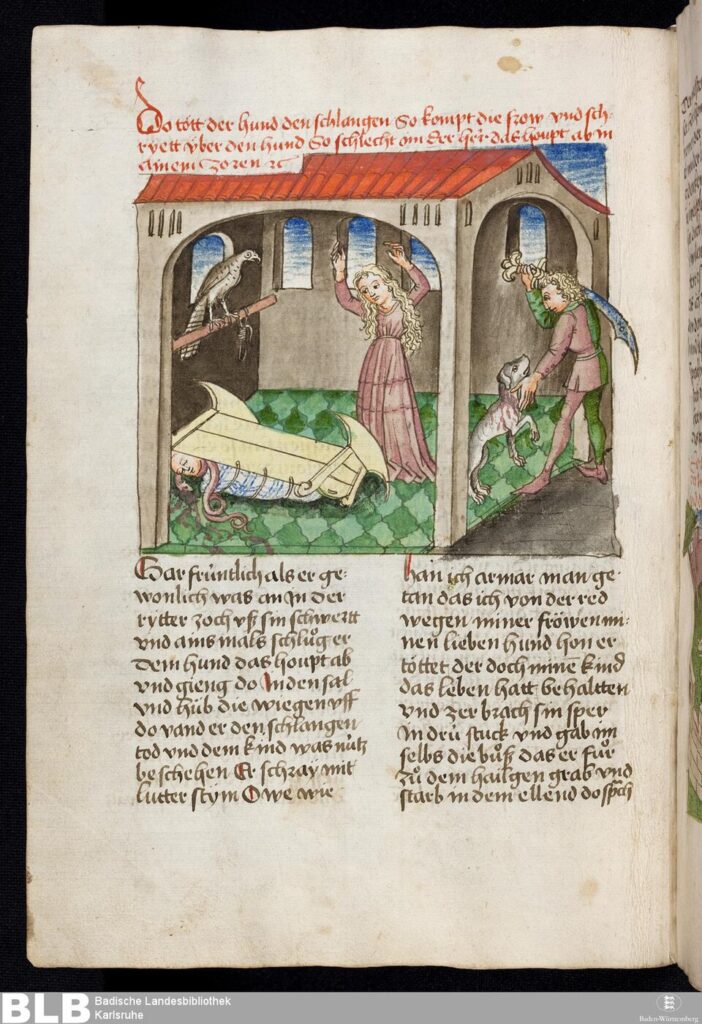 Do tött der hund den schlangen So kompt die frow vnd sch-
ryett v́ber den hund So schlecht im der her das houpt ab in
ainem zoren ꝛc
Gar frúntlich als er ge-
wonlich was an in der
rytter zoch vß sin schwertt
vnd ains mals schlůg er
dem hund das houpt ab
vnd gieng do in den sal
vnd hůb die wiegen vff
do vand er den schlangen
tod vnd dem kind was nútz
beschehen Er schray mit
lutter stym O we wie
han ich armar man ge-
tan das ich von der red
wegen miner fröwen mi-
nen lieben hund hon er
töttet der doch minē kind
das leben hatt behaltten
vnd zer brach sin sper
in drú stuck vnd gab im
selbs die bůß das er fůr
zů dem hailgen grab vnd
starb in dem ellend do sprach
BLB Badische Landesbibliothek
Karlsruhe
Baden-Württemberg